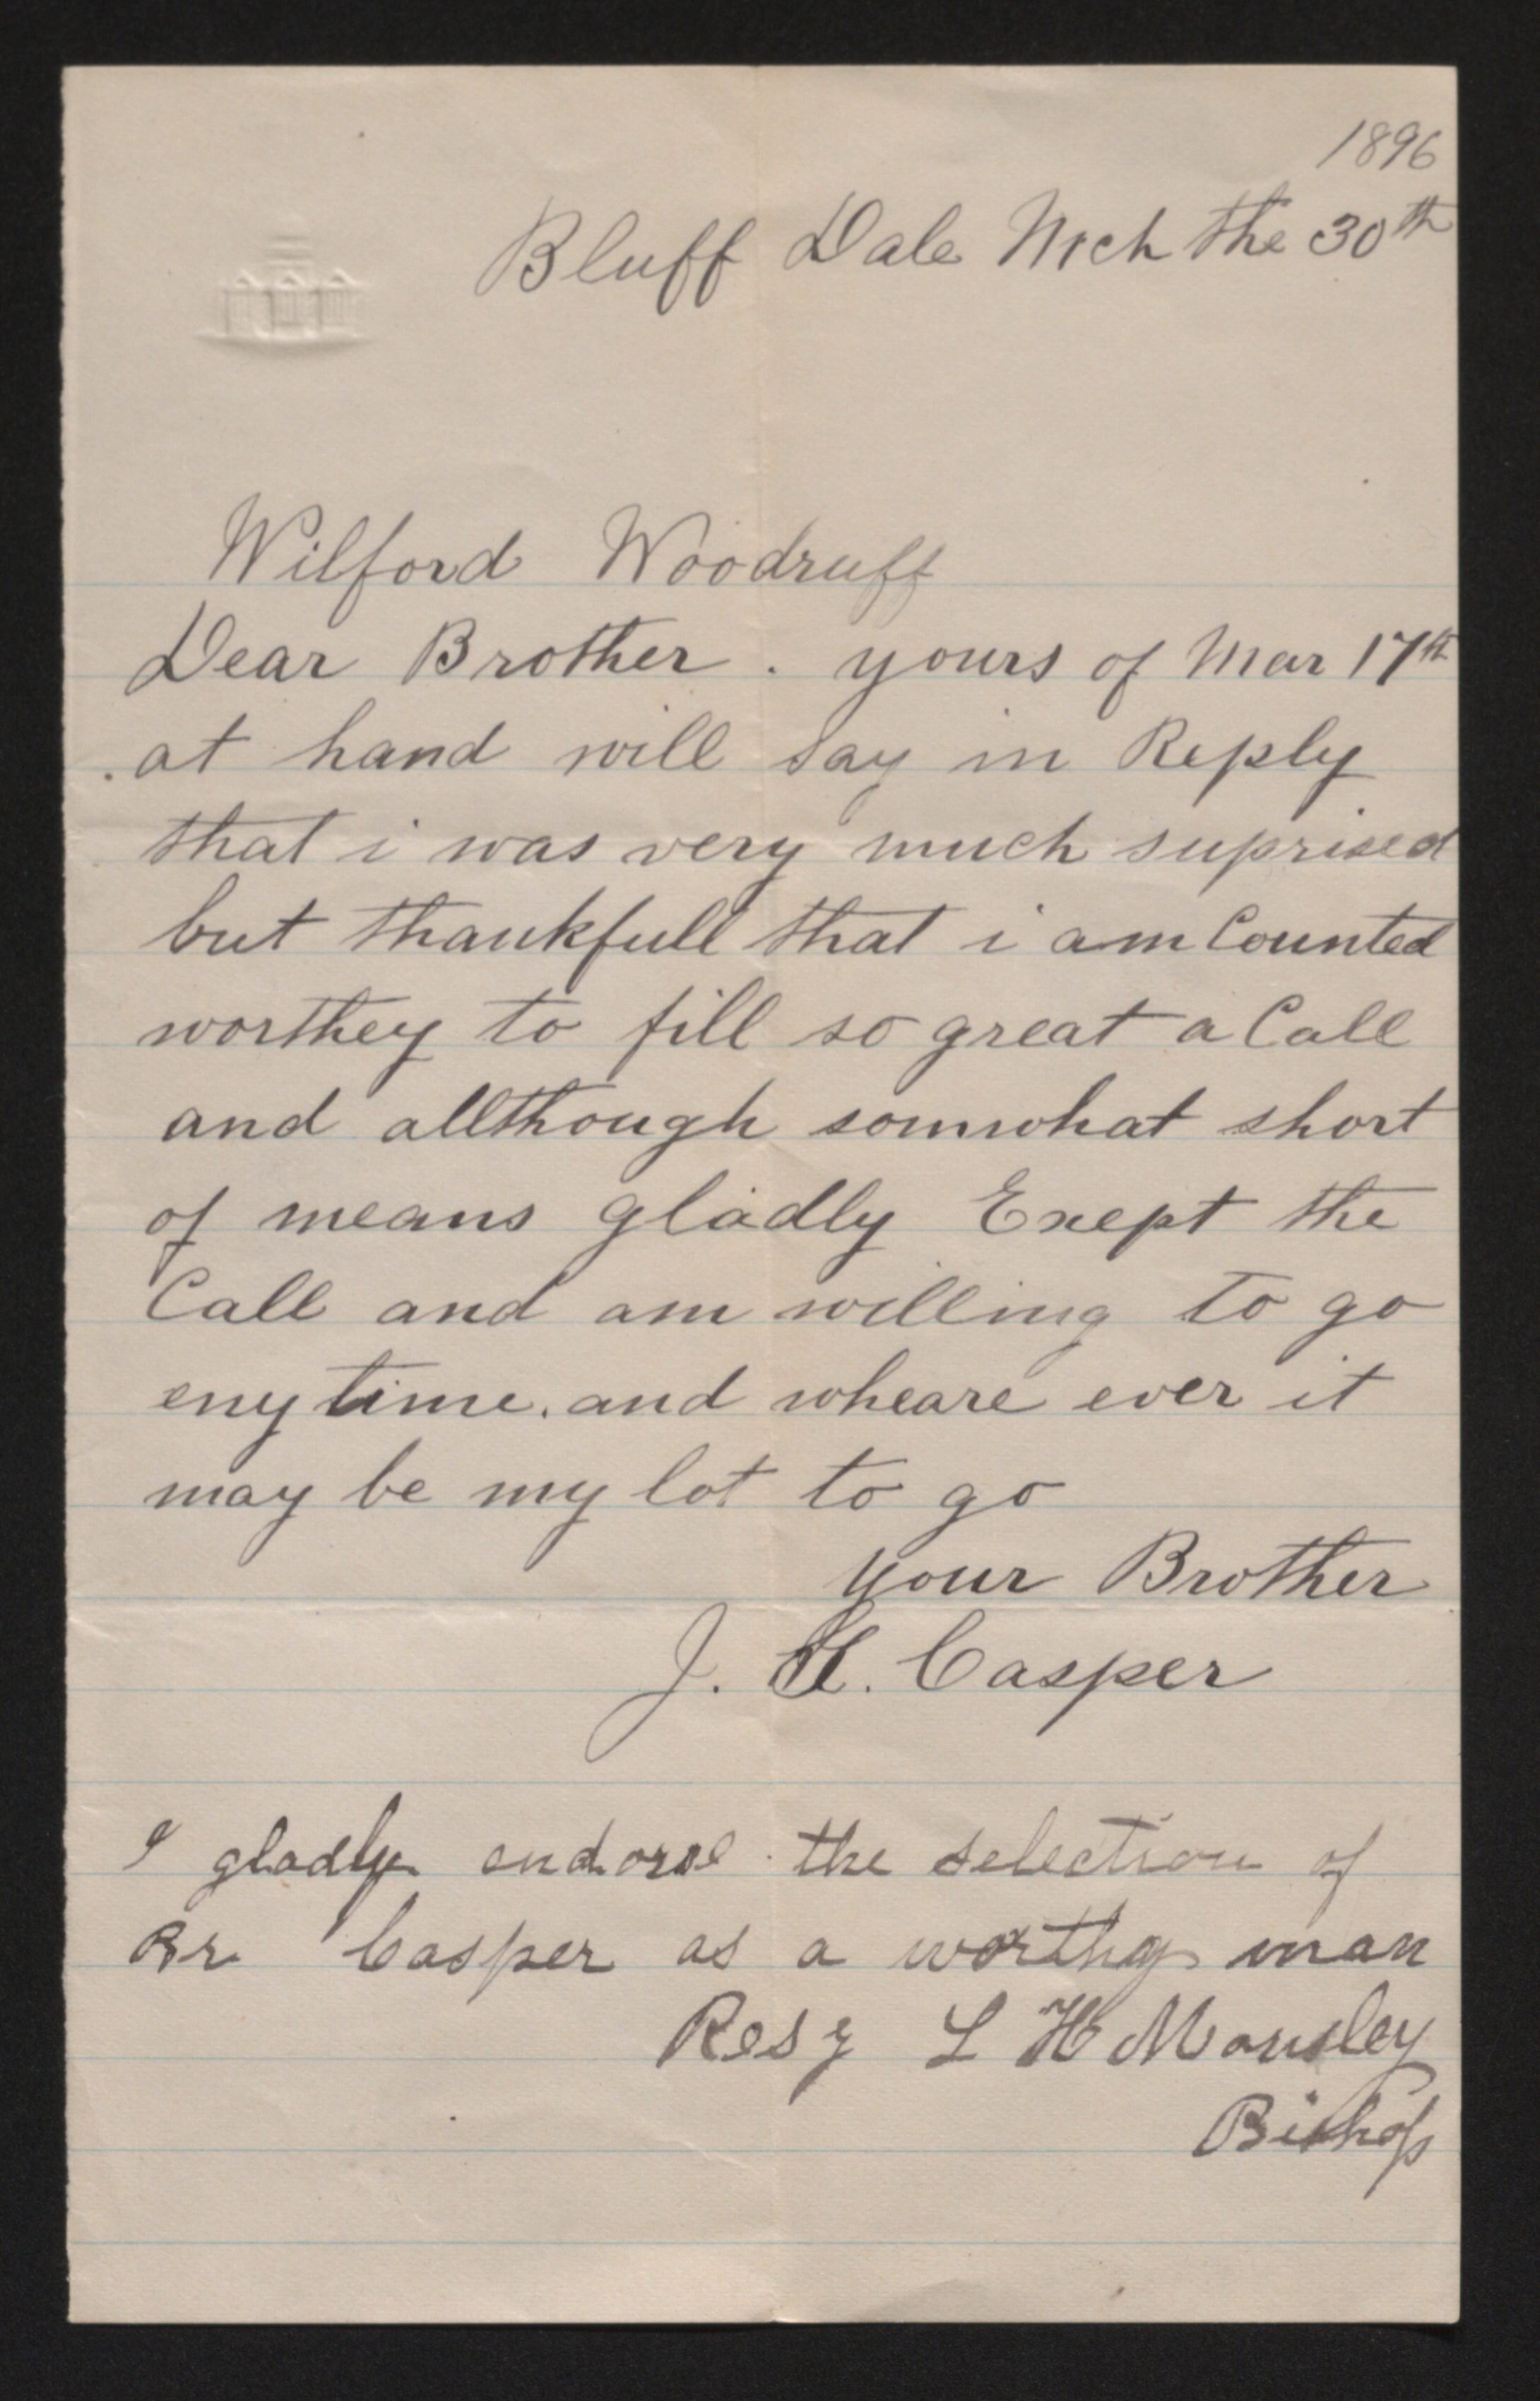 1896
Bluff Dale Mch the 30th
Wilford Woodruff
Dear Brother. yours of Mar 17th
at hand will say in Reply
that i was very much suprised
but thankfull that i am Counted
worthey to fill so great a Call
and allthough somwhat short
of means gladly Exept the
Call and am willing to go
eny time. and wheare ever it
may be my lot to go
your Brother
J. H. Casper
I gladly endorse the selection of
Br Casper as a worthy man
Resy L H Mousley
Bishop